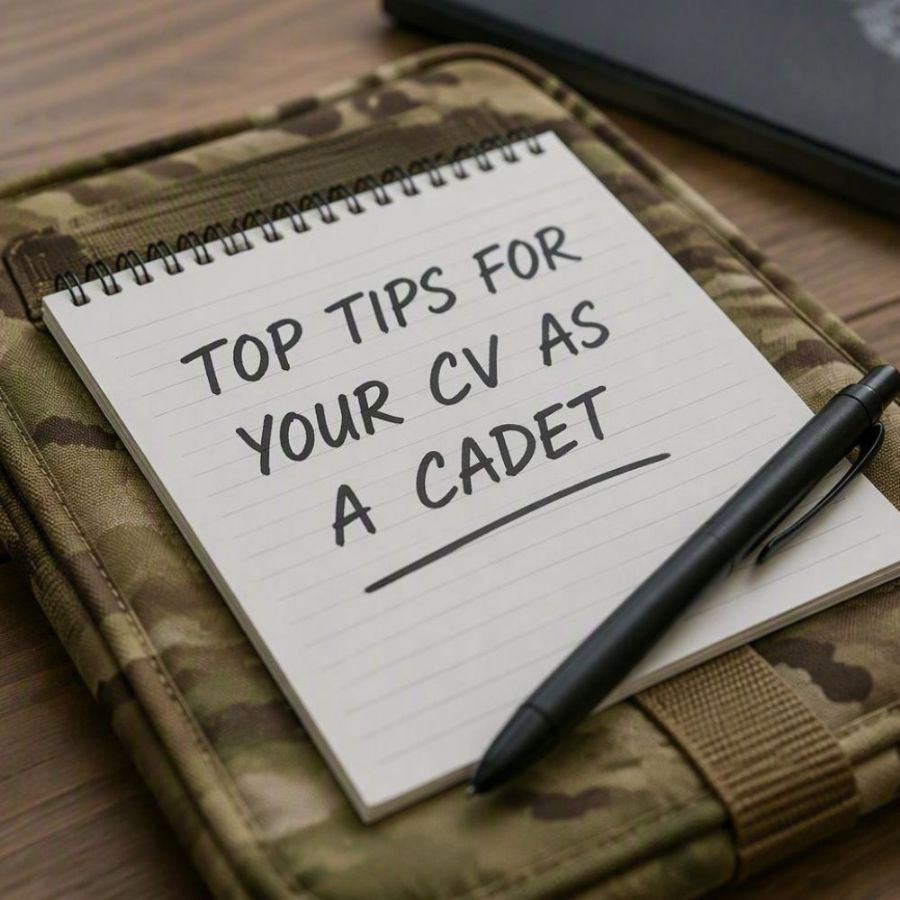 TOP TIPS FOR
YOUR CV AS
A CADET